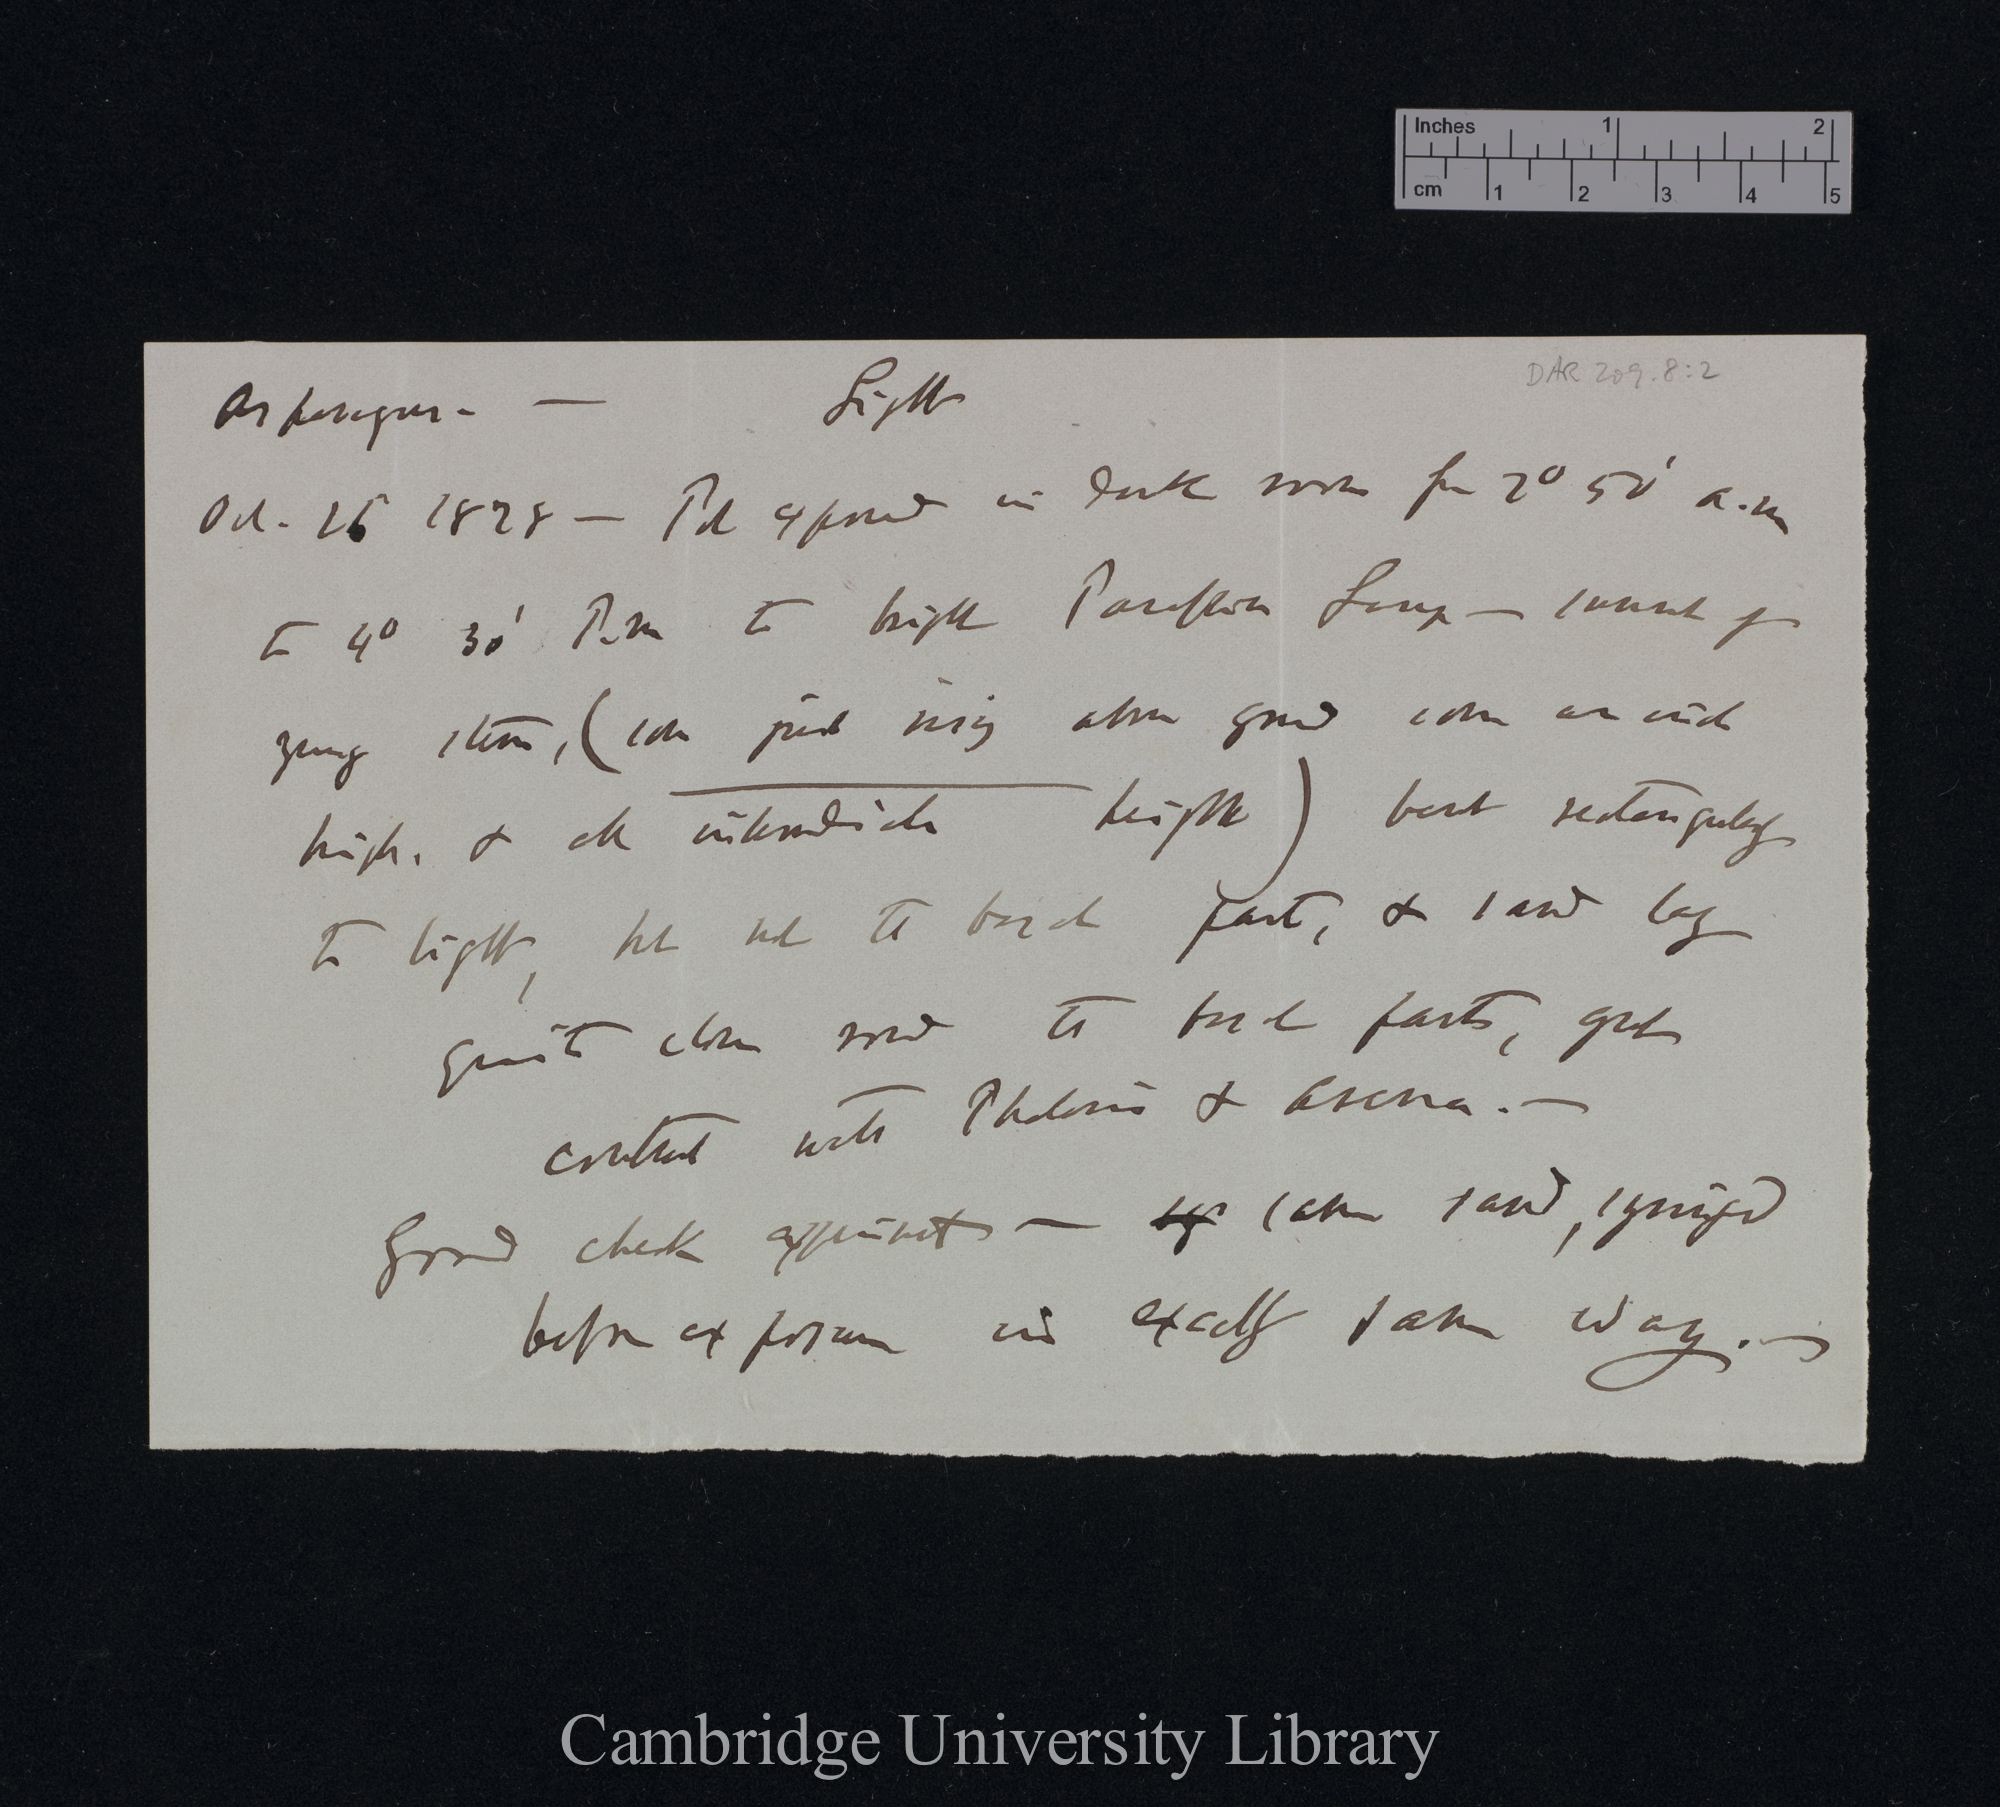 Inches 1 2
cm 1 2 3 4 5
DAR 209.8:2
Asparagus — Light
Oct. 16 1878 — Pot exposed in dark room fm 7° 50' a.m
to 4° 30' P.m to bright Paraffin Lamp —
young stems, (some just rising above ground some an inch
high. & all intermediate heights) bent rectangularly
to light, but not the buried part, & sand lay
quite close round the buried parts, great
contrast with Phalaris & Avena. —
Good check experiment — same sand, syringed
before exposure in exactly same way. —
Cambridge University Library